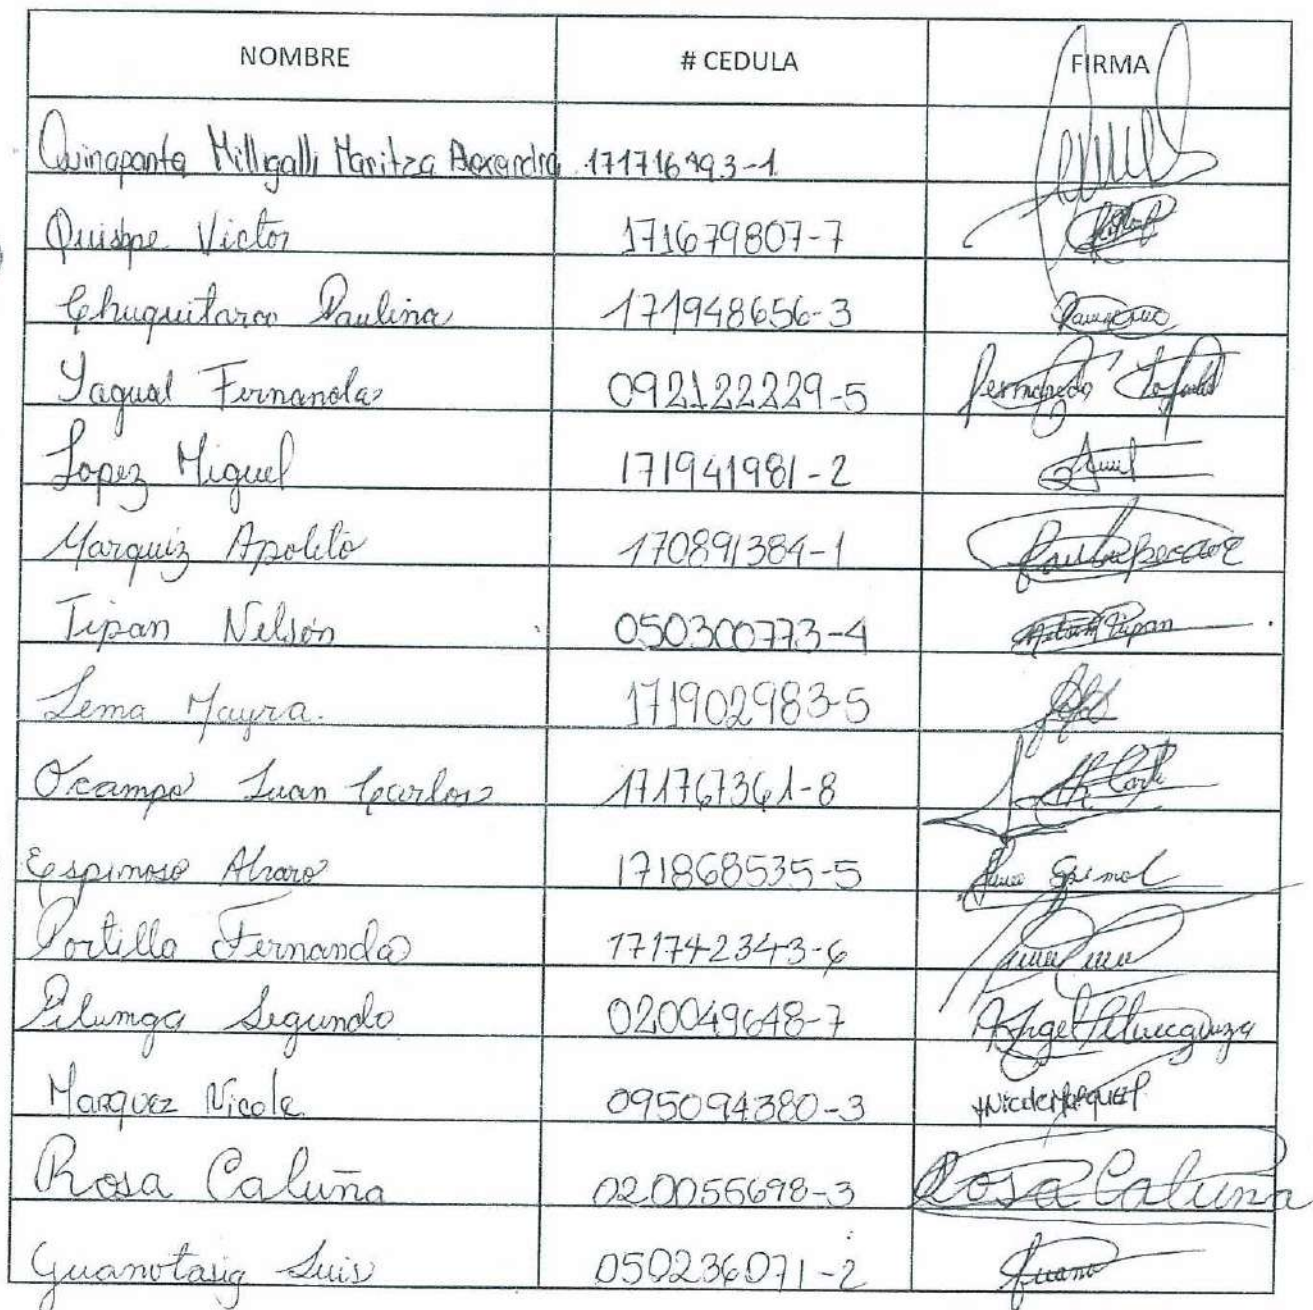 NOMBRE # CEDULA FIRMA
Quinapanta Milligalli Maritza Alexandra 171716793-1
Quishpe Victor 171679807-7
Chuquitarco Paulina 171948656-3
Yagual Fernanda 092122229-5 Fernanda Yagual
Lopez Miguel 171941981-2
Marquiz Apolito 170891384-1
Tipan Nelson 050300773-4 Nelson Tipan
Lema Mayra. 171902983-5
Ocampo Juan Carlos 171767361-8
Espinoso Alvaro 171868535-5
Portilla Fernanda 171742343-6
Pilumga Segundo 020049648-7 Angel
Marquez Nicole 095094380-3 Nicole Marquez
Rosa Caluña 020055698-3 Rosa Caluña
Guanotasig Luis 050236071-2